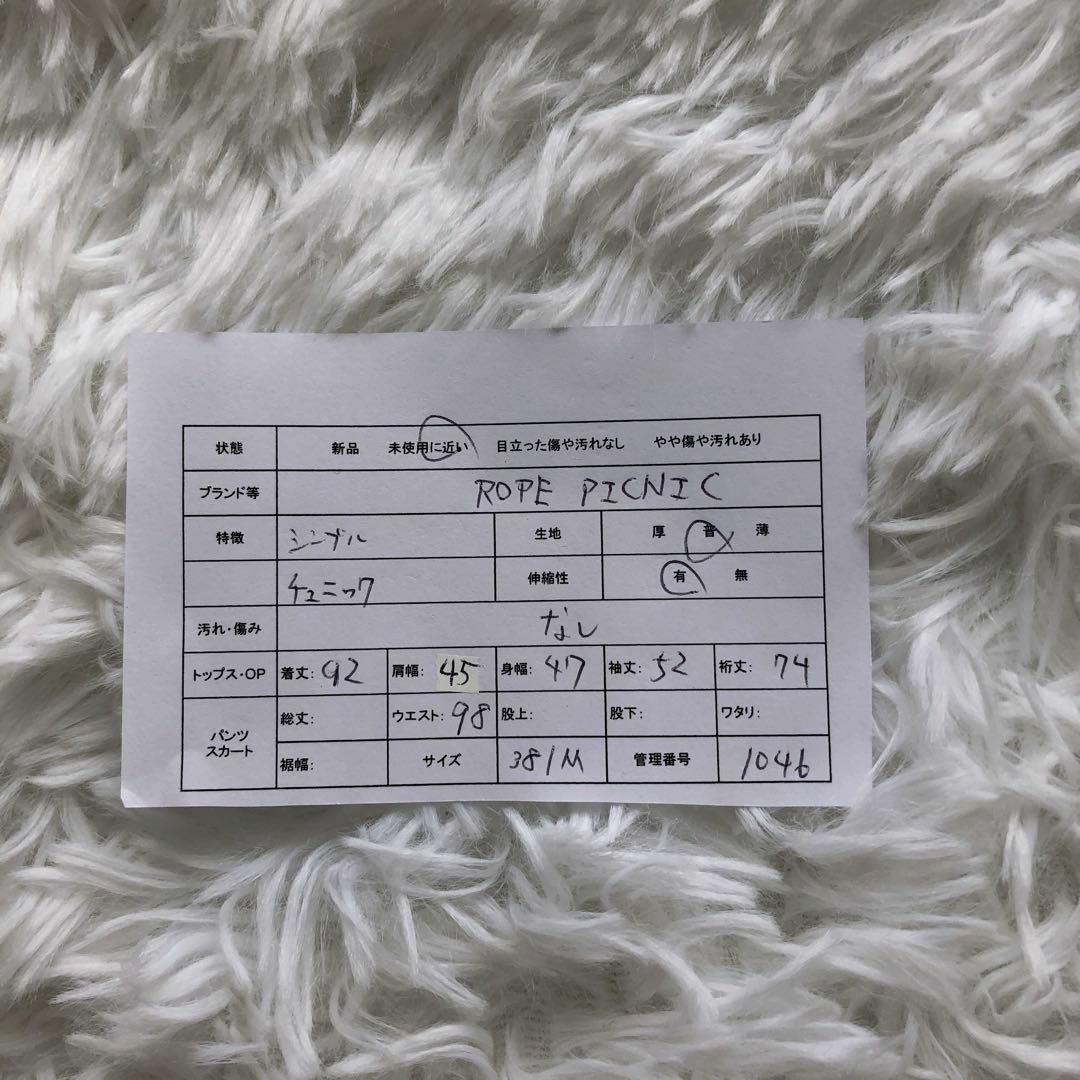 状態 新品 未使用に近い 目立った傷や汚れなし やや傷や汚れあり
ブランド等 ROPE PICNIC
特徴 シンプル 生地 厚 普 薄
チュニック 伸縮性 有 無
汚れ・傷み なし
トップス・OP 着丈: 92 肩幅: 45 身幅: 47 袖丈: 52 裄丈: 74
パンツ スカート 総丈: ウエスト: 98 股上: 股下: ワタリ:
裾幅: サイズ 38/M 管理番号 1046